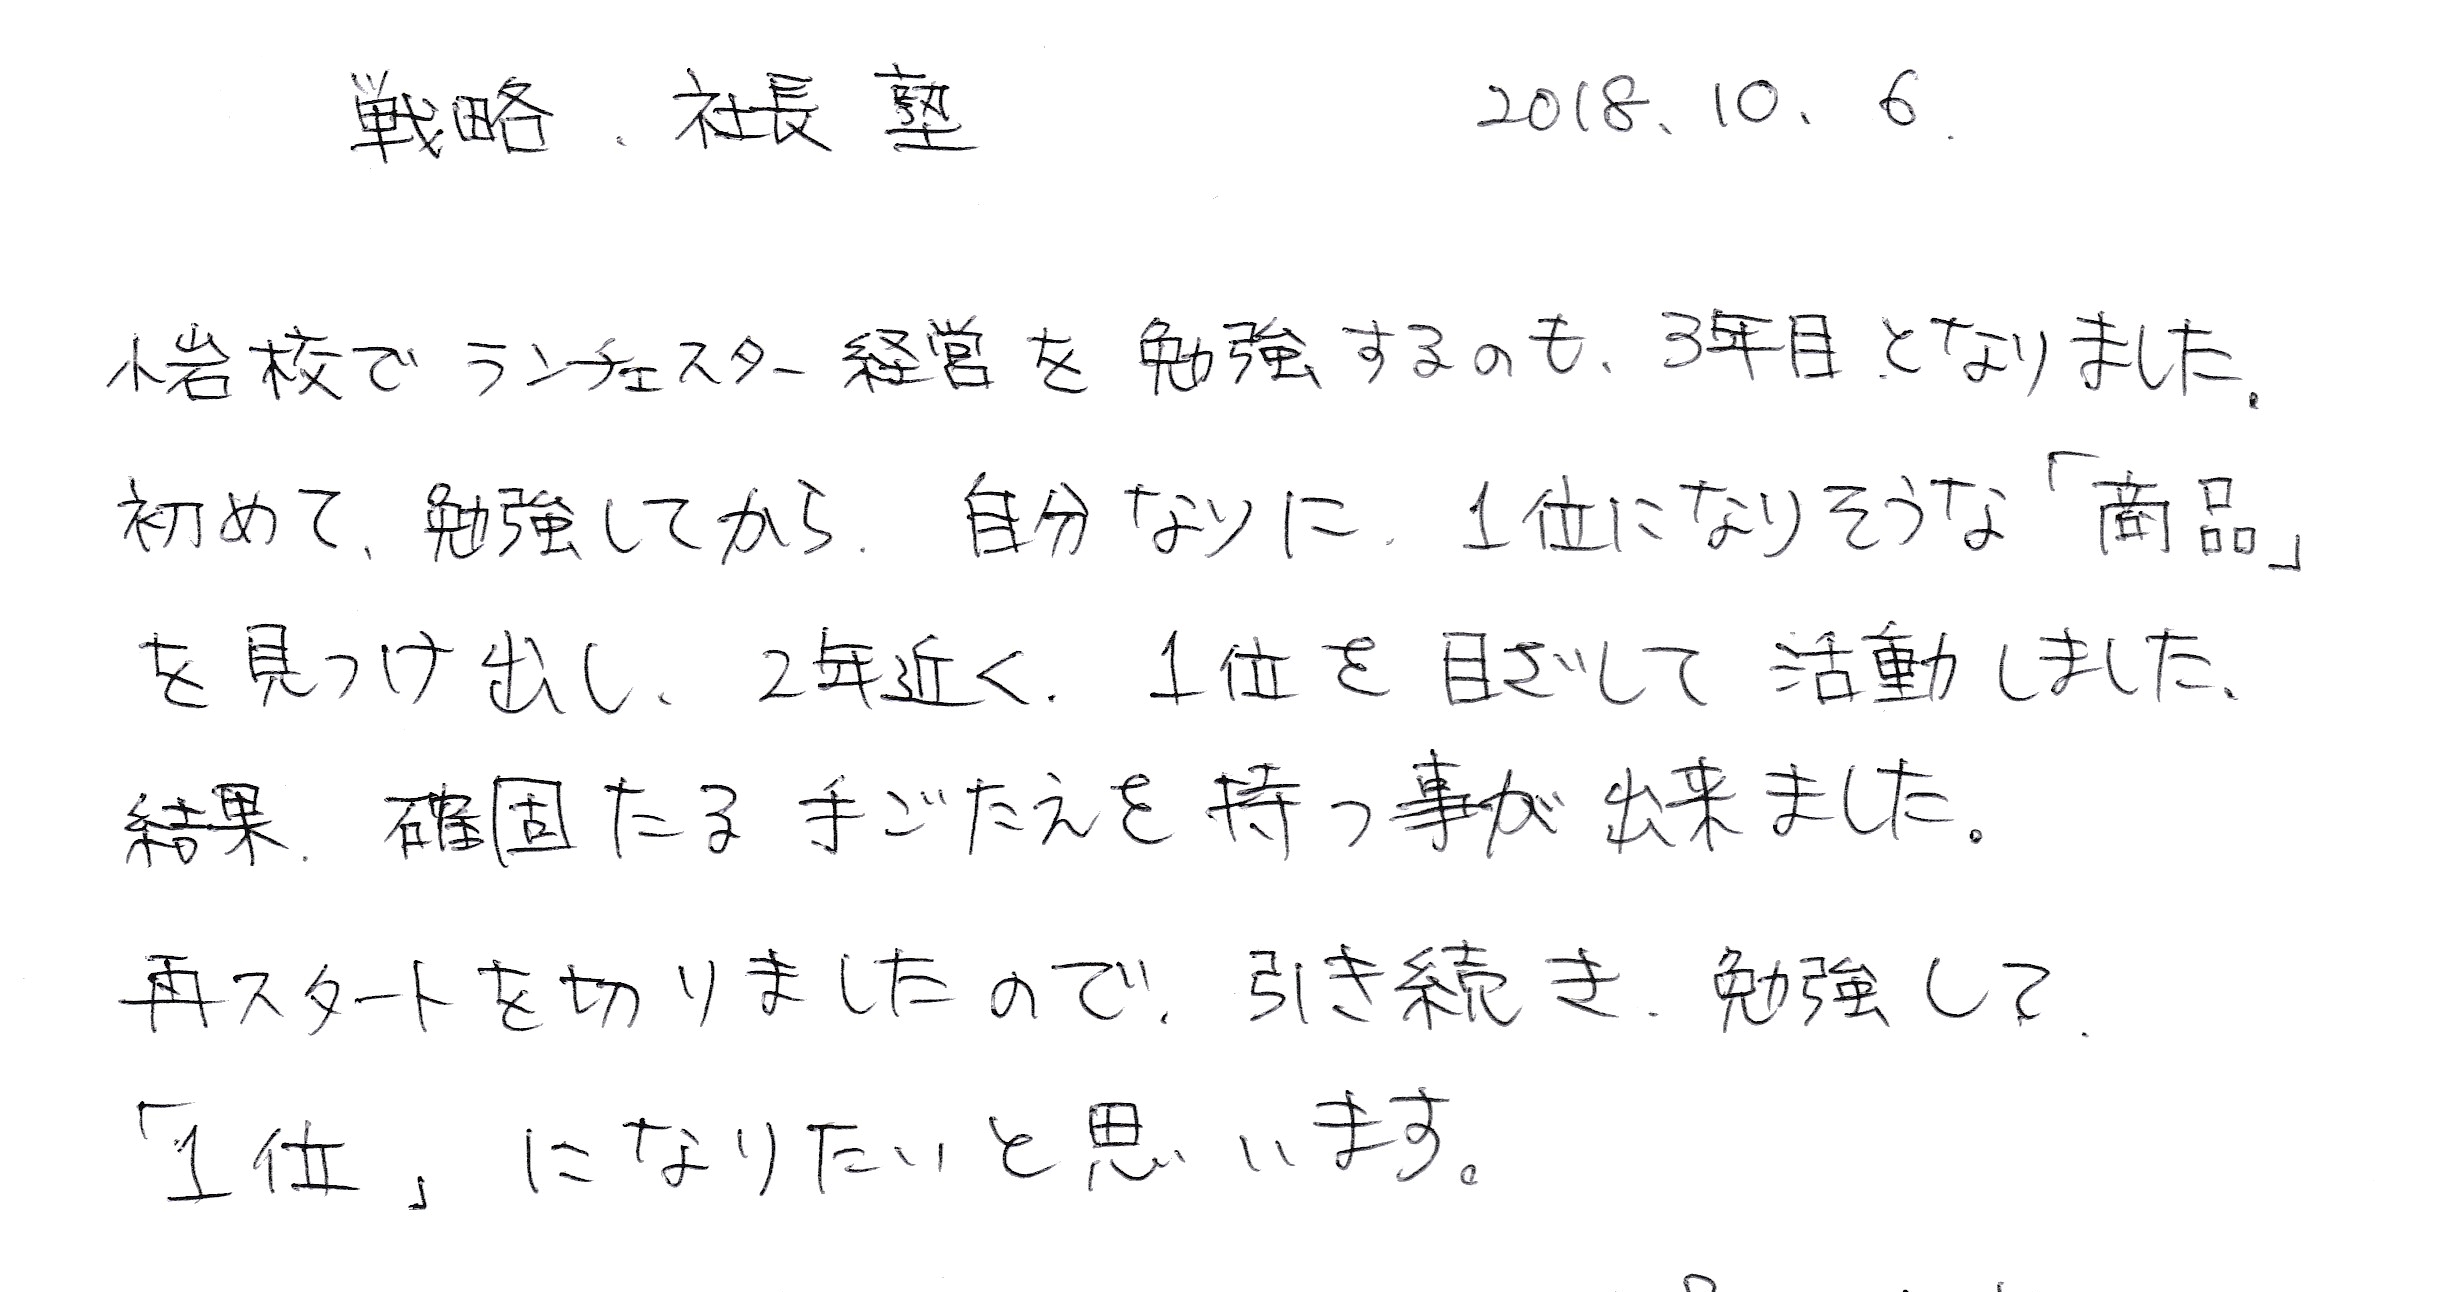 戦略、社長塾 2018、10、6.
小岩校でランチェスター経営を勉強するのも、3年目となりました。
初めて、勉強してから、自分なりに、1位になりそうな「商品」
を見つけ出し、2年近く、1位を目ざして活動しました、
結果、確固たる手ごたえを持つ事が出来ました。
再スタートを切りましたので、引き続き、勉強して、
「1位」になりたいと思います。